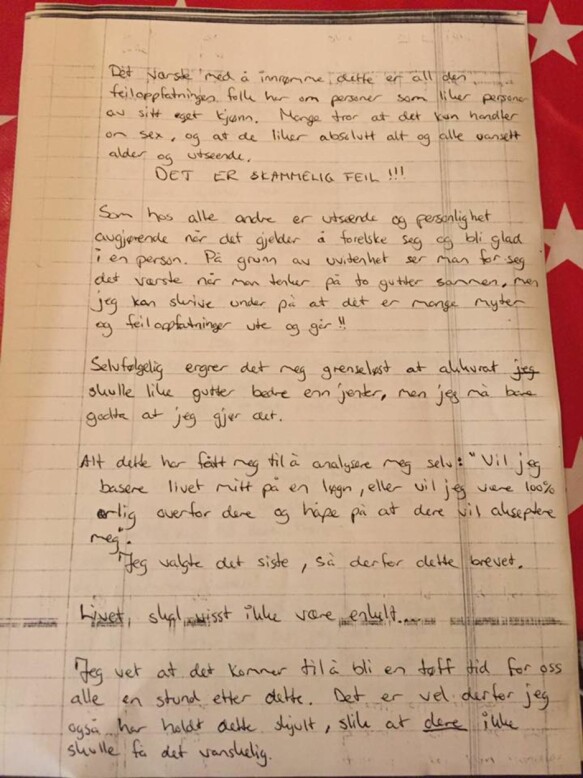 Det værste med å innrømme dette er all den
feiloppfatningen folk har om personer som liker personer
av sitt eget kjønn. Mange tror at det kun handler
om sex, og at de liker absolutt alt og alle uansett
alder og utseende.
DET ER SKAMMELIG FEIL !!!
Som hos alle andre er utseende og personlighet
avgjørende når det gjelder å forelske seg og bli glad
i en person. På grunn av uvitenhet ser man for seg
det værste når man tenker på to gutter sammen, men
jeg kan skrive under på at det er mange myter
og feiloppfatninger ute og går !!
Selvfølgelig ergrer det meg grenseløst at akkurat jeg
skulle like gutter bedre enn jenter, men jeg må bare
godta at jeg gjør det.
Alt dette har fått meg til å analysere meg selv: "Vil jeg
basere livet mitt på en løgn, eller vil jeg være 100%
ærlig overfor dere og håpe på at dere vil akseptere
meg".
Jeg valgte det siste, så derfor dette brevet.
Livet skal visst ikke være enkelt....
Jeg vet at det kommer til å bli en tøff tid for oss
alle en stund etter dette. Det er vel derfor jeg
også har holdt dette skjult, slik at dere ikke
skulle få det vanskelig.